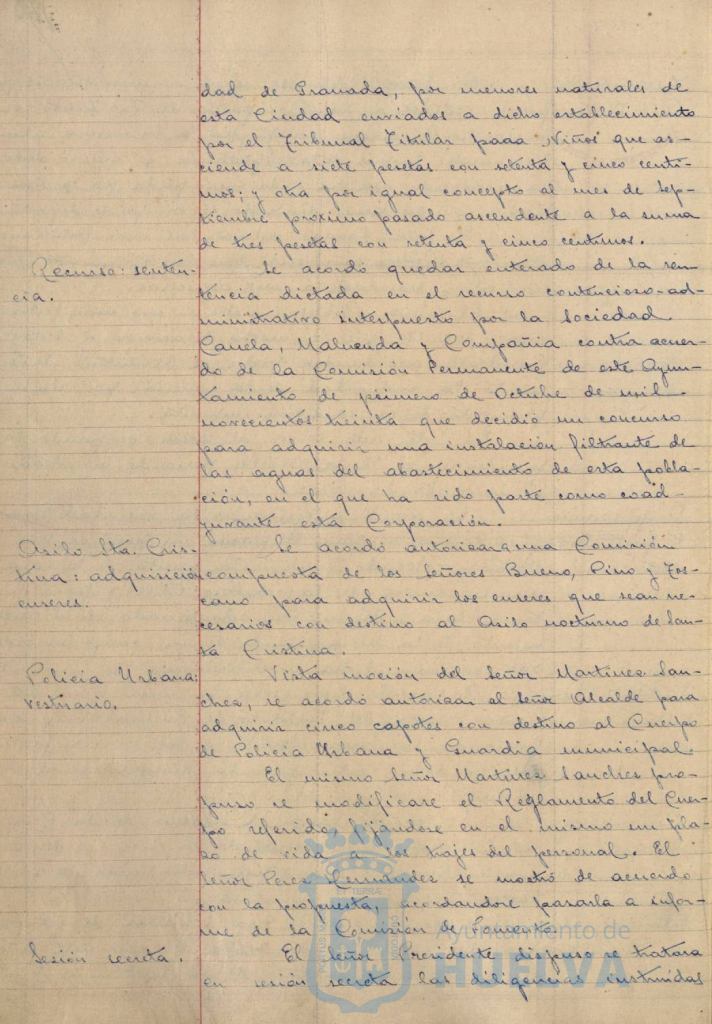 dad de Granada, por menores naturales de
esta Ciudad enviados a dicho establecimiento
por el Tribunal Titular paaa Niños que as-
ciende a siete pesetas con setenta y cinco centi-
mos; y otra por igual concepto al mes de Sep-
tiembre próximo pasado ascendente a la suma
de tres pesetas con setenta y cinco centimos.
Recurso: senten-
cia.
Se acordó quedar enterado de la sen-
tencia dictada en el recurso contencioso-ad-
ministrativo interpuesto por la Sociedad
Canela, Maluenda y Compañia contra acuer-
do de la Comisión Permanente de este Ayun-
tamiento de primero de Octubre de mil
novecientos treinta que decidió un concurso
para adquirir una instalación filtrante de
las aguas del abastecimiento de esta pobla-
ción, en el que ha sido parte como coad-
yuvante esta Corporación.
Asilo Sta. Cris-
tina: adquisición
enseres.
Se acordó autorizar una Comisión
compuesta de los Señores Bueno, Pino y Tos-
cano para adquirir los enseres que sean ne-
cesarios con destino al Asilo nocturno de San-
ta Cristina.
Policia Urbana:
vestuario.
Vista moción del Señor Martinez San-
chez, se acordó autorizar al Señor Alcalde para
adquirir cinco capotes con destino al Cuerpo
de Policia Urbana y Guardia municipal.
El mismo Señor Martinez Sanchez pro-
puso se modificase el Reglamento del Cuer-
po referido, fijándose en el mismo un pla-
zo de vida a los trajes del personal. El
Señor Perez Hernandez se mostró de acuerdo
con la propuesta, acordandose pasarla a infor-
me de la Comisión de Fomento.
Sesión secreta.
El Señor Presidente dispuso se tratara
en sesión secreta las diligencias instruidas
Ayuntamiento de
HUELVA